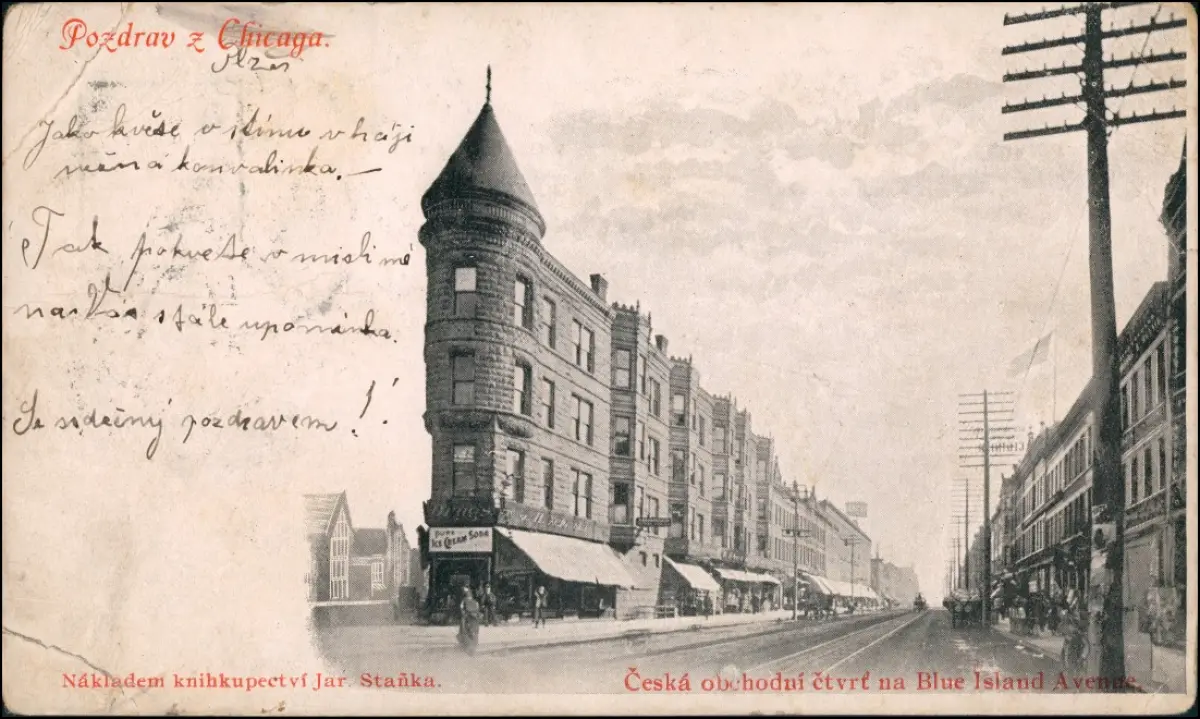 Pozdrav z Chicaga.
Jako květe v stínu v háji
něžná konvalinka. —
Tak pokvete v misli mé
na Vás stále upomínka.
Se srdečným pozdravem!
PURE
ICE CREAM SODA
Nákladem knihkupectví Jar. Staňka.
Česká obchodní čtvrť na Blue Island Avenue.